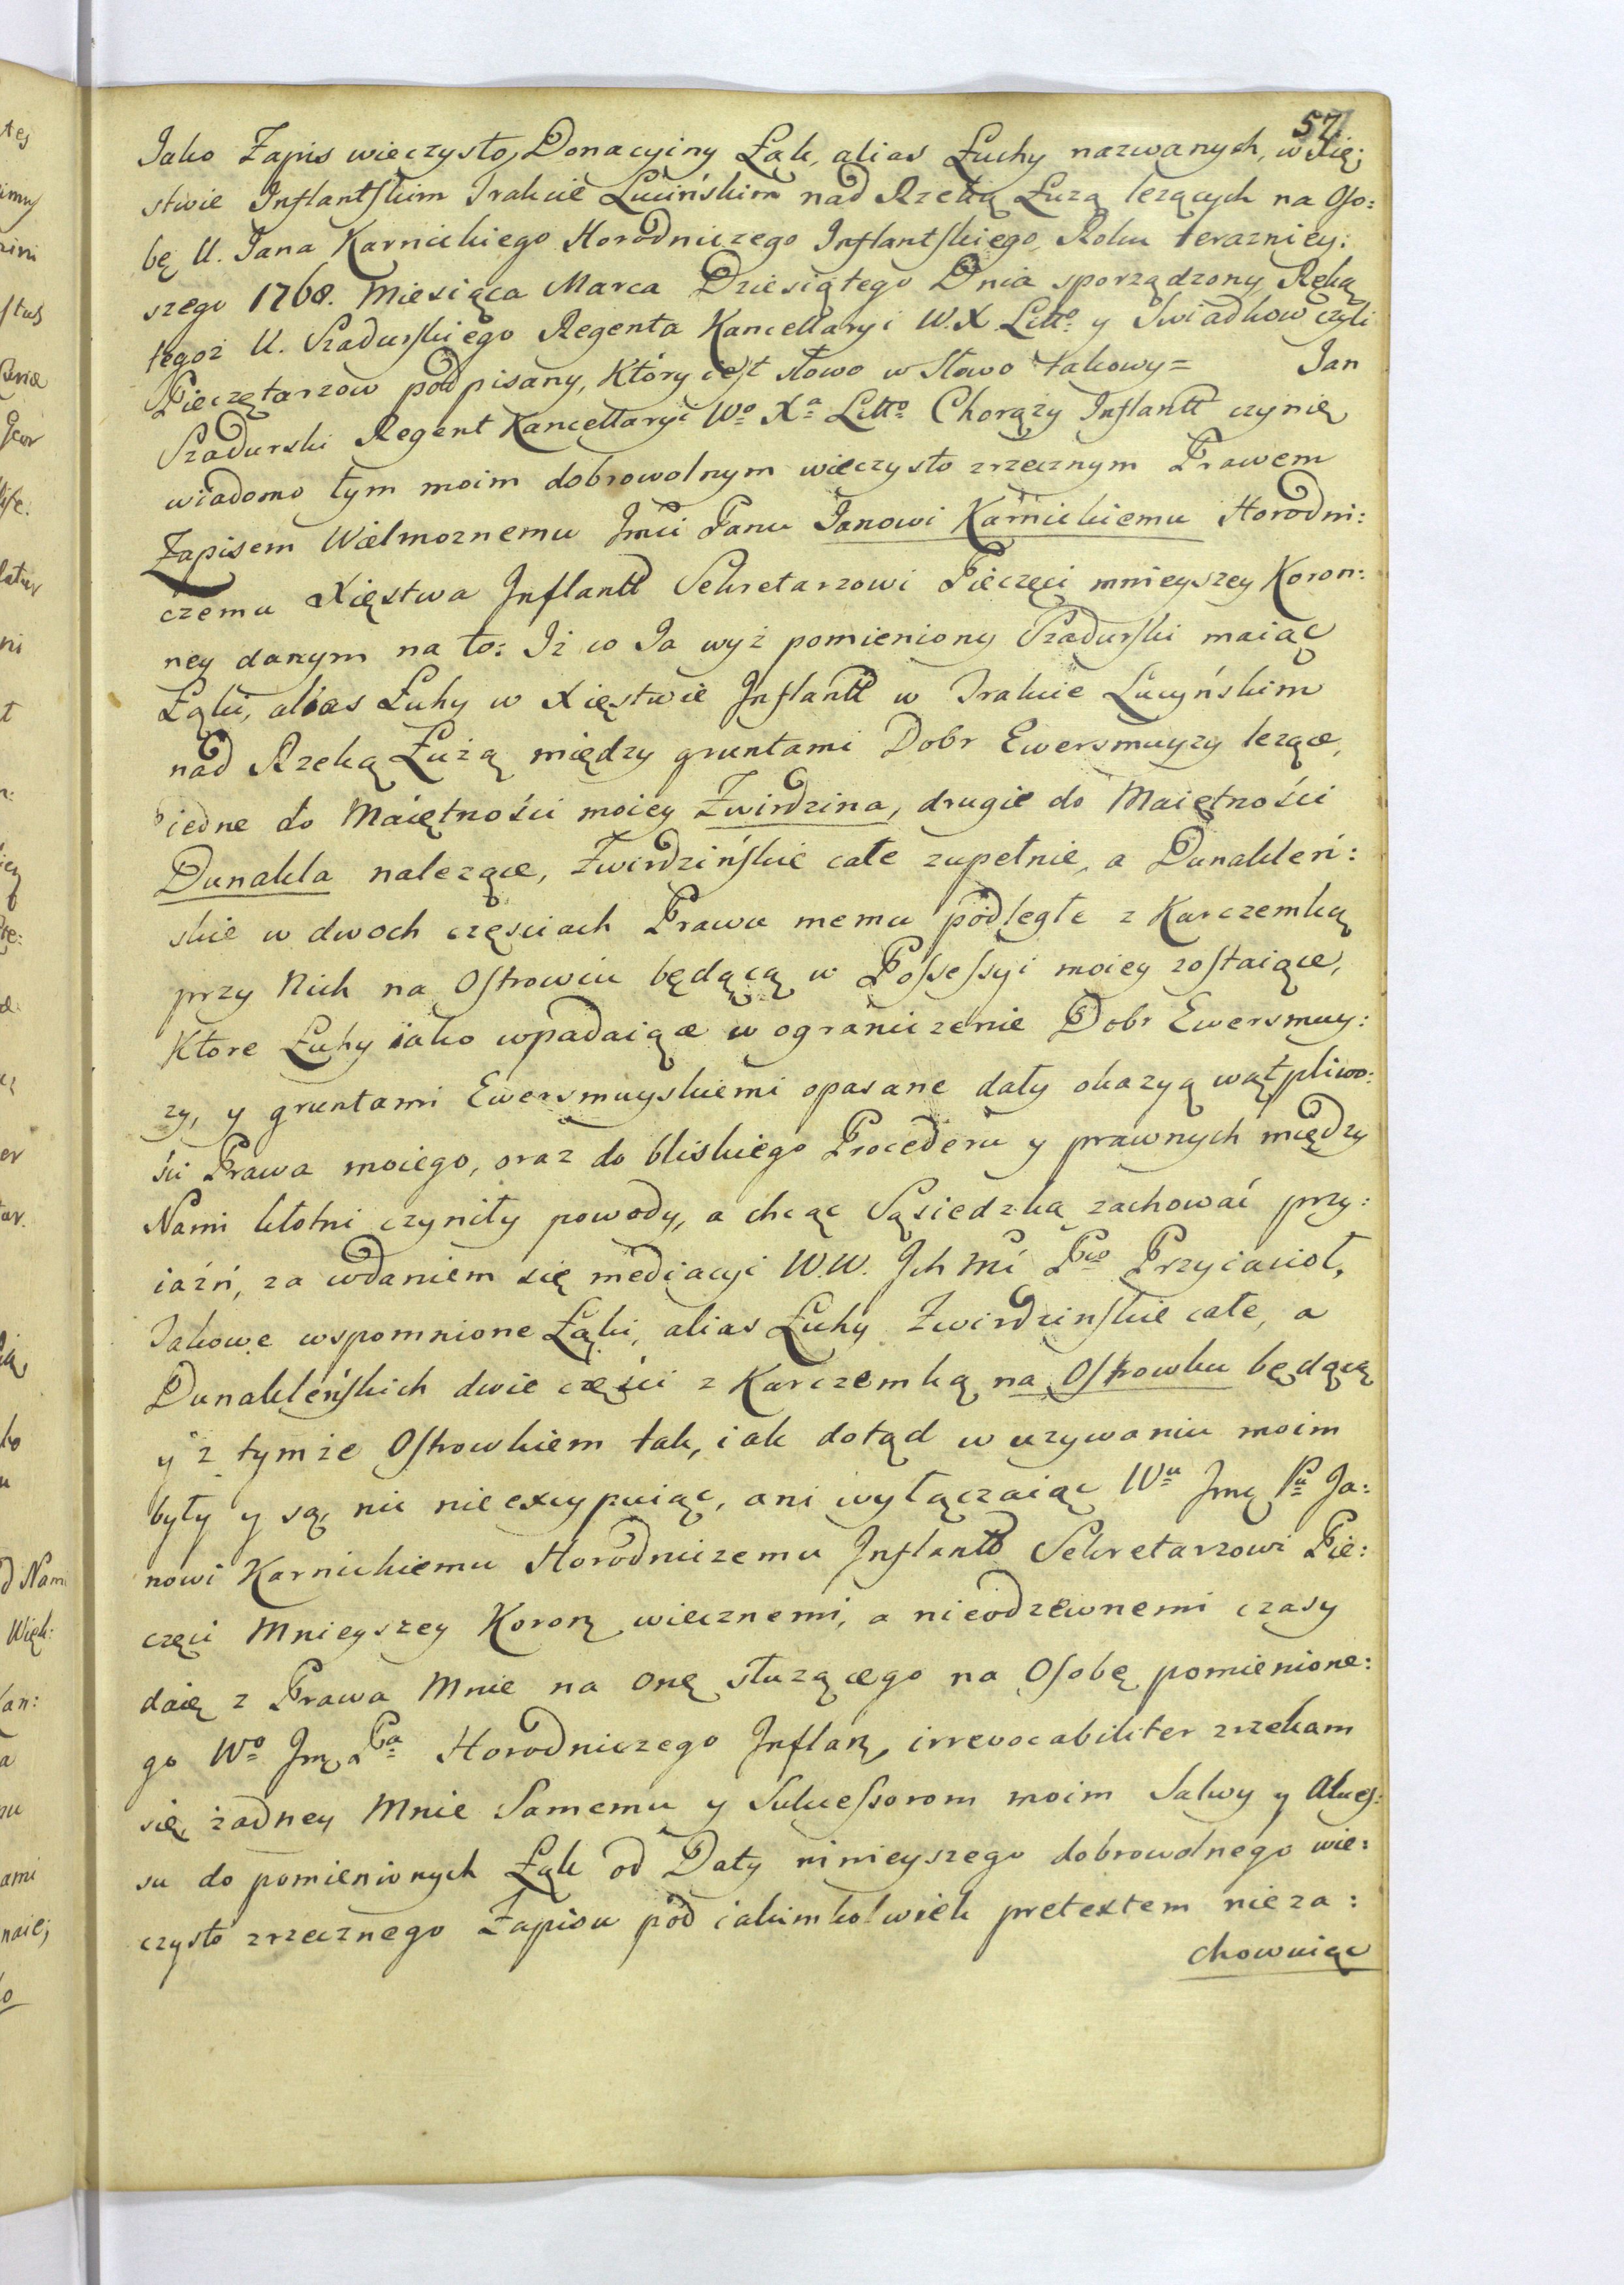 57
Jako Zapis wieczysto, Donacyiny Łąk, alias Łuchy nazwanych, w Xię:
stwie Inflantskim Trakcie Lucińskim nad Rzeką Łuzą lezących na Oso:
bę U. Jana Karnickiego Horodniczego Inflantskiego, Roku terazniey:
szego 1768. Miesiąca Marca Dziesiątego Dnia sporządzony, Ręką
tegoż U. Szadurskiego Regenta Kancellaryi W. X. Litto y Swiadkow czyli
Pieczętarzow podpisany, Który iest słowo w słowo takowy = Jan
Szadurski Regent Kancellaryi Wo Xa Litto Chorąży Inflantt czynię
wiadomo tym moim dobrowolnym wieczysto zrzecznym Prawem
Zapisem Wielmoznemu Jmci Panu Janowi Karnickiemu Horodni:
czemu Xięstwa Inflantt Sekretarzowi Pieczęci mnieyszey Koron:
ney danym na to: Iż co Ja wyż pomieniony Szadurski maiąc
Łąki, alias Łuhy w Xięstwie Inflantt w Trakcie Lucyńskim
nad Rzeką Łużą między gruntami Dobr Ewersmuyzy lezące,
iedne do Maiętności moiey Zwirdzina, drugie do Maiętności
Dunakla nalezące, Zwirdzińskie całe zupełnie, a Dunakleń:
skie w dwoch częsciach Prawu memu podległe z Karczemką
przy Nich na Ostrowiu będącą w Possessyi moiey zostaiące,
Ktore Łuhy iako wpadaiące w ograniczenie Dobr Ewersmuy:
zy, y gruntami Ewersmuyskiemi opasane dały okazyą wątpliwo:
ści Prawa moiego, oraz do bliskiego Procederu y prawnych między
Nami kłotni czyniły powody, a chcąc Sąsiedzką zachować przy:
iaźń, za wdaniem się mediacyi W.W. Ich Mć Pw Przyiacioł,
Takowe wspomnione Łąki, alias Łuhy Zwirdzinskie całe, a
Dunakleńskich dwie części z Karczemką na Ostrowku będącą
y z tymże Ostrowkiem tak, iak dotąd w uzywaniu moim
były y są, nic nie excypuiąc, ani wyłączaiąc Wu Jmę Pu Ja:
nowi Karnickiemu Horodniczemu Inflantt Sekretarzowi Pie:
częci Mnieyszey Koron, wiecznemi, a nieodzewnemi czasy
daię z Prawa Mnie na onę słuzącego na Osobę pomienione:
go Wo Jmę Pa Horodniczego Inflan, irrevocabiliter zrzekam
się, żadney Mnie Samemu y Sukcessorom moim Salwy y Akces:
su do pomienionych Łąk od Daty ninieyszego dobrowolnego wie:
czysto zrzecznego Zapisu pod iakimkolwiek pretextem nieza:
chowuiąc